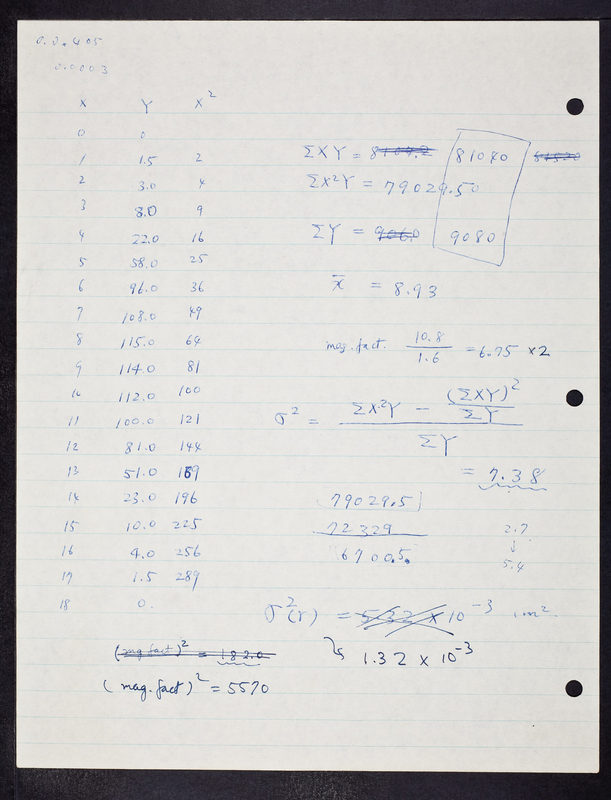 0.0.405
0.0003
X Y X²
0 0
1 1.5 2
2 3.0 4
3 8.0 9
4 22.0 16
5 58.0 25
6 96.0 36
7 108.0 49
8 115.0 64
9 114.0 81
10 112.0 100
11 100.0 121
12 81.0 144
13 51.0 169
14 23.0 196
15 10.0 225
16 4.0 256
17 1.5 289
18 0.
(mag fact)² = 182.0
(mag. fact)² = 5570
ΣXY = 8109.2 81080
ΣX²Y = 79029.50
ΣY = 9060 9080
x̄ = 8.93
mag. fact. 10.8 / 1.6 = 6.75 × 2
σ² = ΣX²Y − (ΣXY)² / ΣY
ΣY
= 7.38
79029.5
72329
6700.5.
2.7
↓
5.4
σ²(r) = 5.32 × 10⁻³ cm²
1.32 × 10⁻³